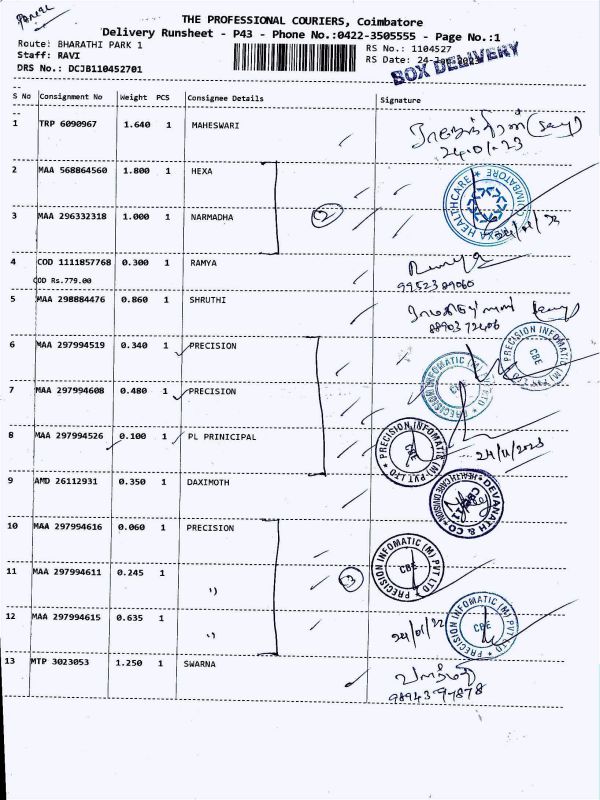 THE PROFESSIONAL COURIERS, Coimbatore
Delivery Runsheet - P43 - Phone No.:0422-3505555 - Page No.:1
Route: BHARATHI PARK 1
RS No.: 1104527
Staff: RAVI
RS Date: 24-Jan-2023
DRS No.: DCJB110452701
BOX DELIVERY
S No Consignment No Weight PCS Consignee Details Signature
1 TRP 6090967 1.640 1 MAHESWARI
24.01.23
2 MAA 568864560 1.800 1 HEXA
HEXA HEALTHCARE * COIMBATORE *
3 MAA 296332318 1.000 1 NARMADHA
2
24/01/23
4 COD 1111857768 0.300 1 RAMYA
COD Rs.779.00
Ramya
9952389060
5 MAA 298884476 0.860 1 SHRUTHI
88903 72406
6 MAA 297994519 0.340 1 PRECISION
PRECISION INFOMATIC (M) PVT LTD * CBE
7 MAA 297994608 0.480 1 PRECISION
PRECISION INFOMATIC (M) PVT LTD * CBE
8 MAA 297994526 0.100 1 PL PRINICIPAL
PRECISION INFOMATIC (M) PVT LTD * CBE
9 AMD 26112931 0.350 1 DAXIMOTH
DEVANATH & CO * HEALTH CARE DIVISION *
10 MAA 297994616 0.060 1 PRECISION
PRECISION INFOMATIC (M) PVT LTD * CBE
11 MAA 297994611 0.245 1 ")
3
12 MAA 297994615 0.635 1 ")
PRECISION INFOMATIC (M) PVT LTD * CBE
13 MTP 3023053 1.250 1 SWARNA
98943 97878